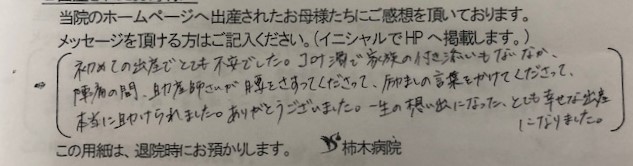 当院のホームページへ出産されたお母様たちにご感想を頂いております。
メッセージを頂ける方はご記入ください。(イニシャルでHPへ掲載します。)
初めての出産でとても不安でした。コロナ渦で家族の付き添いもないなか、
陣痛の間、助産師さんが腰をさすってくださって、励ましの言葉をかけてくださって、
本当に助けられました。ありがとうございました。一生の想い出になった、とても幸せな出産
になりました。
この用紙は、退院時にお預かりします。 柿木病院